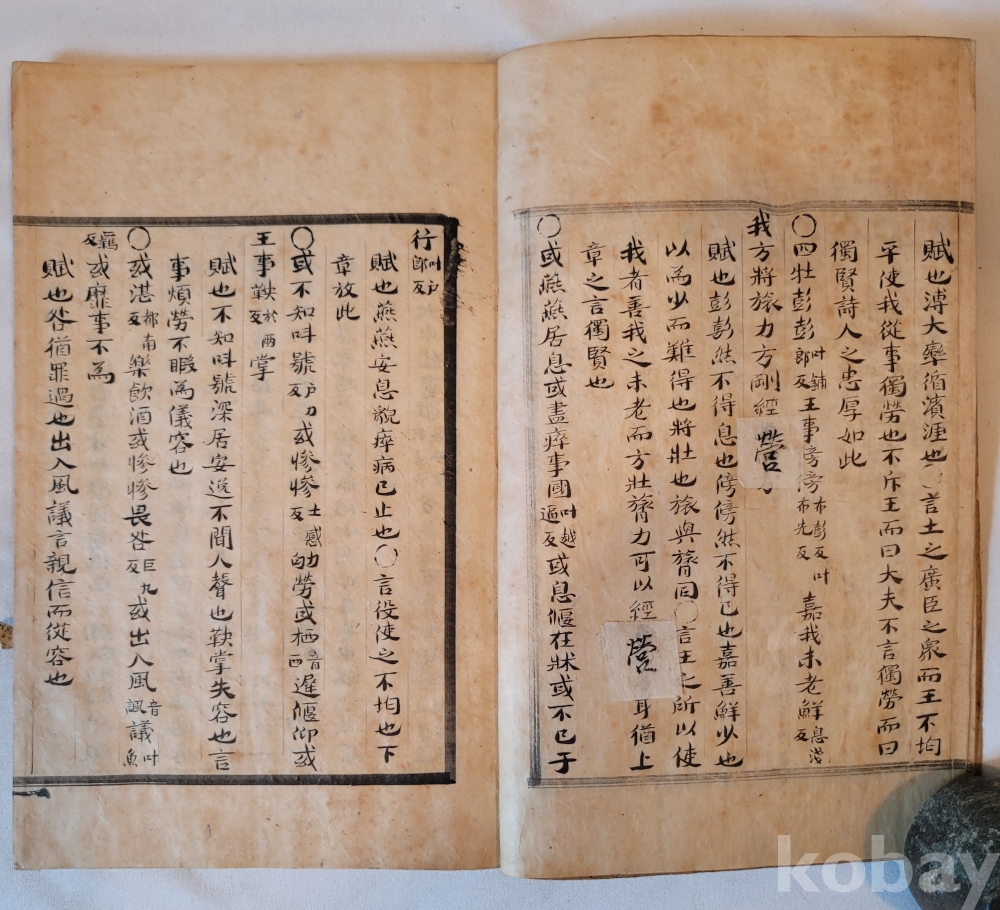 賦也溥大率循濱涯也○言土之廣臣之衆而王不均
平使我從事獨勞也不斥王而曰大夫不言獨勞而曰
獨賢詩人之忠厚如此
○四牡彭彭叶鋪郎反王事傍傍布彭反叶布光反嘉我未老鮮息淺反
我方將旅力方剛經營
賦也彭彭然不得息也傍傍然不得已也嘉善鮮少也
以為少而難得也將壯也旅與膂同○言王之所以使
我者善我之未老而方壯膂力可以經營耳猶上
章之言獨賢也
○或燕燕居息或盡瘁事國叶越逼反或息偃在牀或不已于
行叶戶郎反
賦也燕燕安息貌瘁病已止也○言役使之不均也下
章放此
○或不知叫號戶刀反或慘慘士感反劬勞或栖音西遲偃仰或
王事鞅於兩反掌
賦也不知叫號深居安逸不聞人聲也鞅掌失容也言
事煩勞不暇為儀容也
○或湛都南反樂飲酒或慘慘畏咎巨九反或出入風音諷議叶魚
羈反或靡事不為
賦也咎猶罪過也出入風議言親信而從容也
kobay